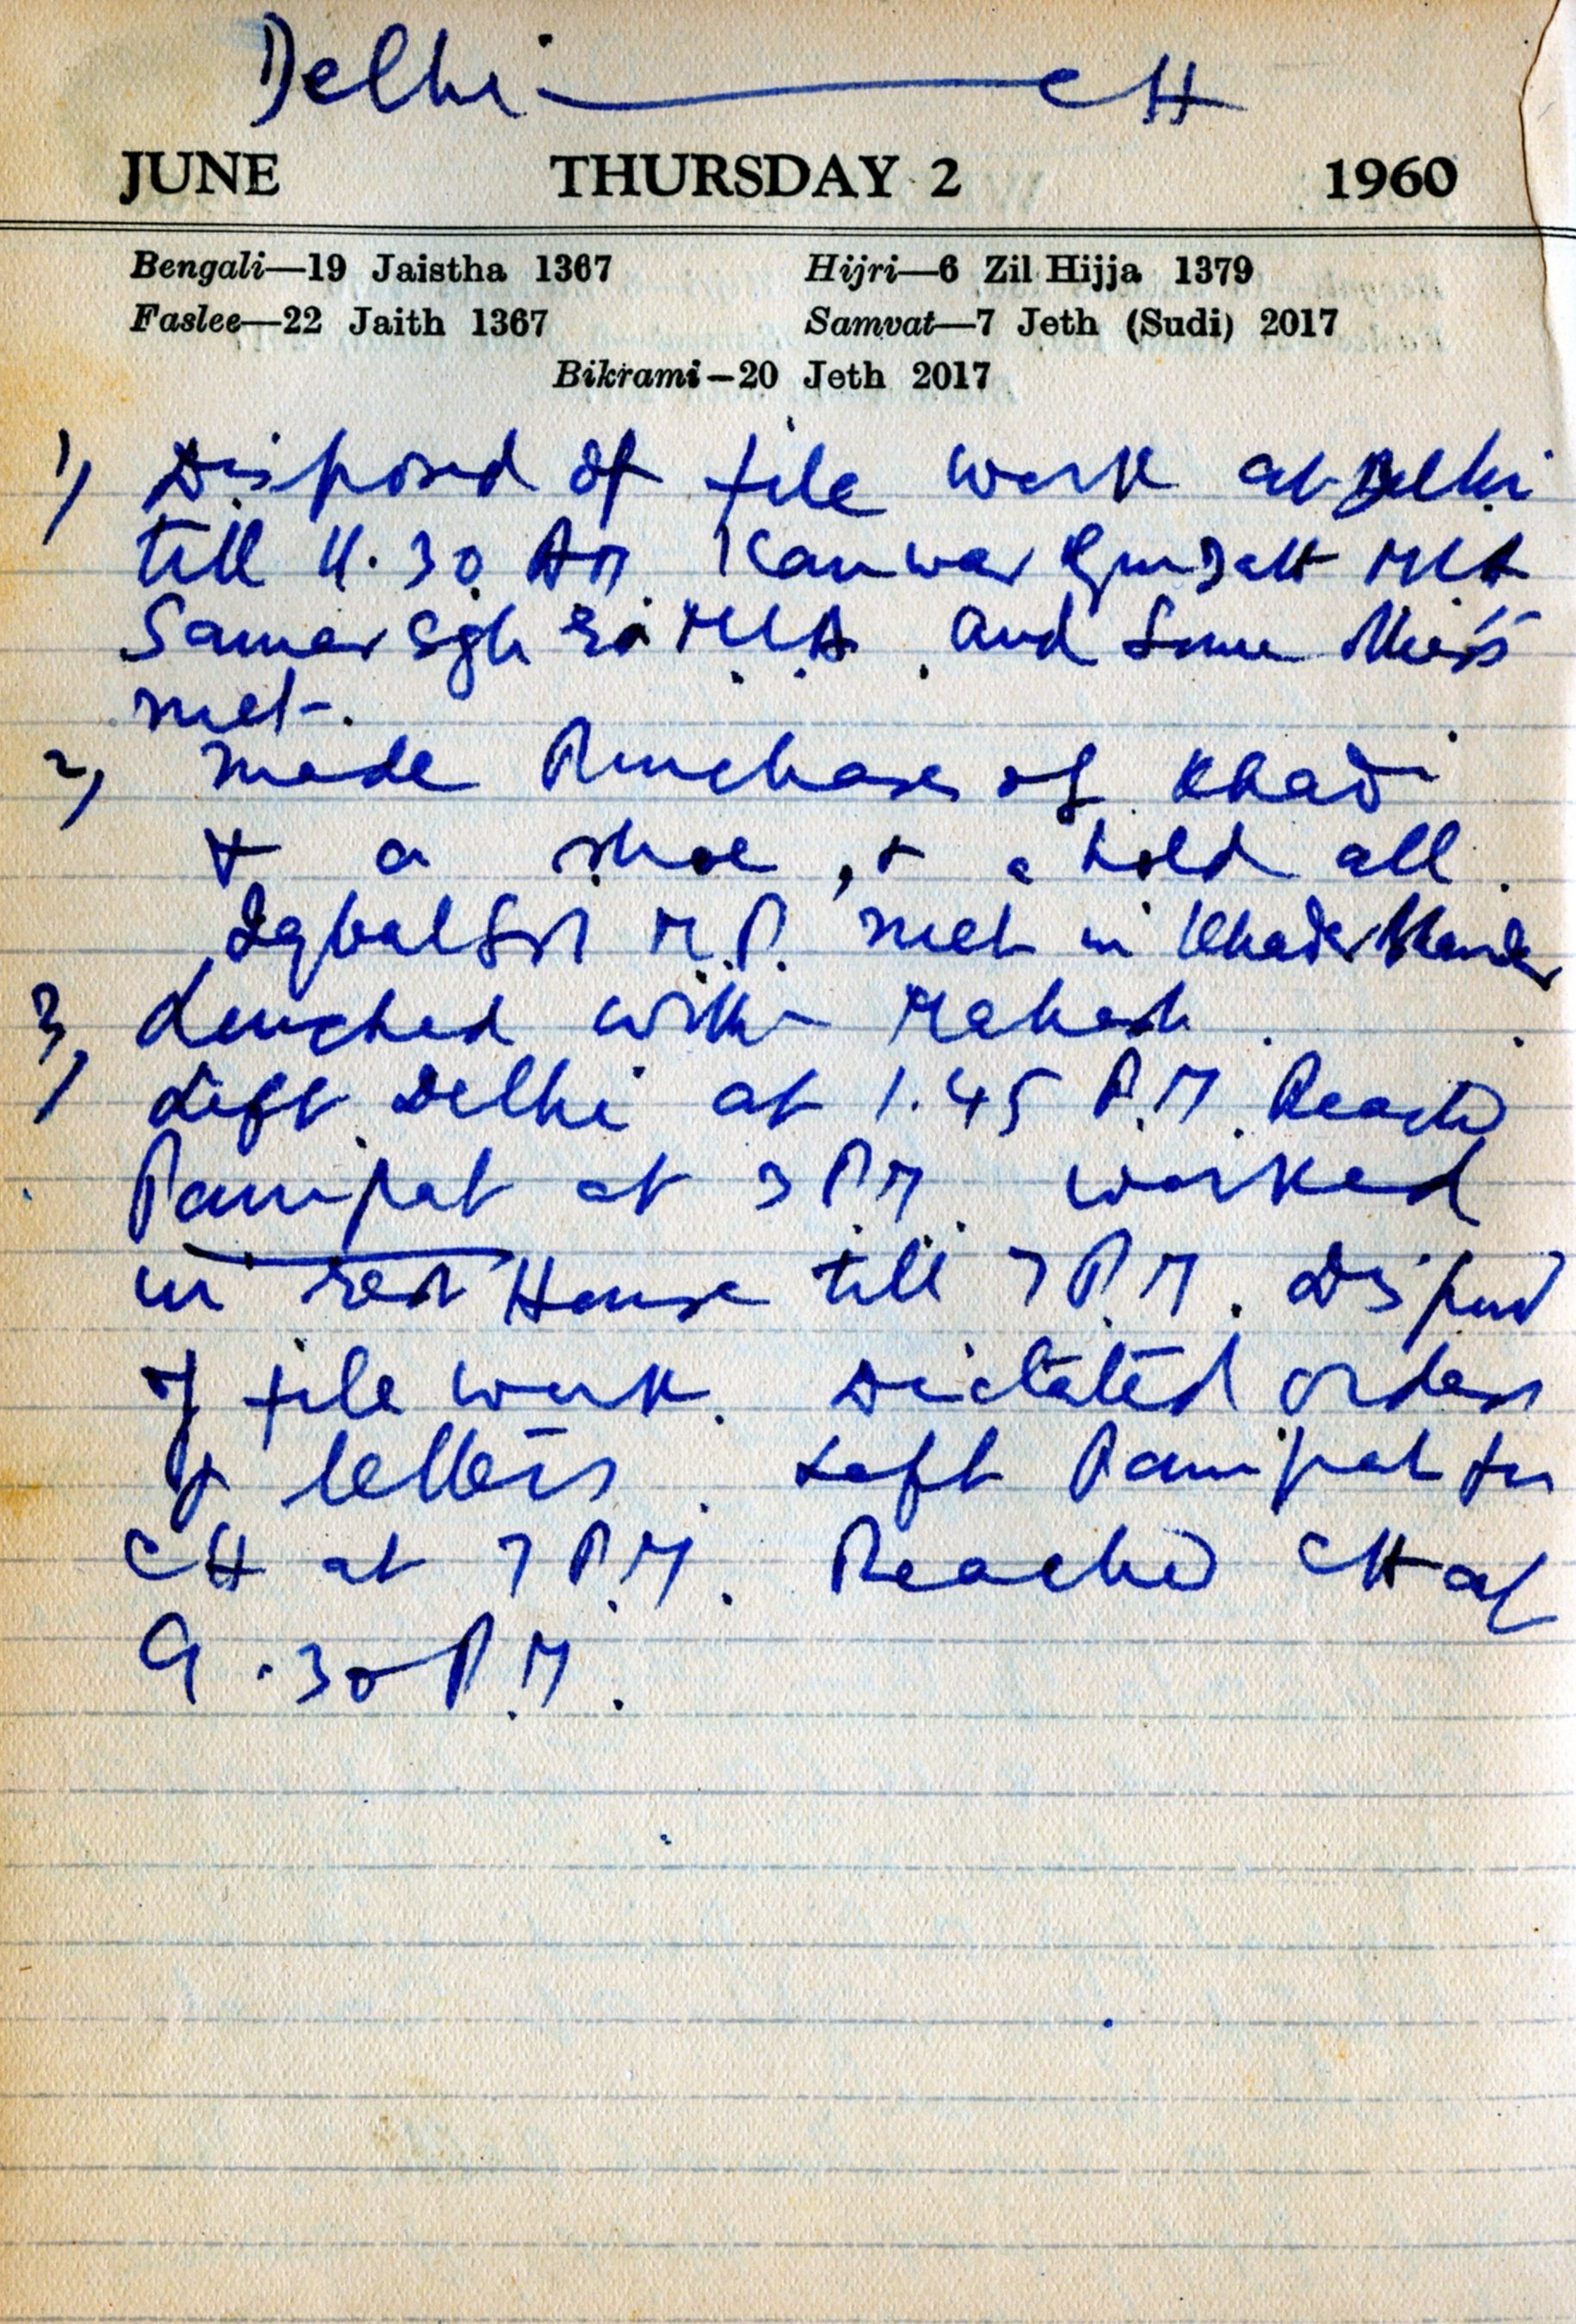 Delhi — CH
JUNE THURSDAY 2 1960
Bengali—19 Jaistha 1367 Hijri—6 Zil Hijja 1379
Faslee—22 Jaith 1367 Samvat—7 Jeth (Sudi) 2017
Bikrami—20 Jeth 2017
1) Disposed of file work at Delhi
till 11.30 AM Kanwar Gurdatt MLA
Samar Sgh Ex MLA and some others
met.
2) made Purchases of Khadi
& a shoe, & a hold all.
Iqbal Sgh M.P. met in Khadi
3) Lunched with Mahesh.
Left Delhi at 1.45 P.M. Reached
Panipat at 3 P.M. worked
in rest House till 7 P.M. Disposed
of file work. Dictated orders
& letters. Left Panipat for
CH at 7 P.M. Reached CH at
9.30 P.M.